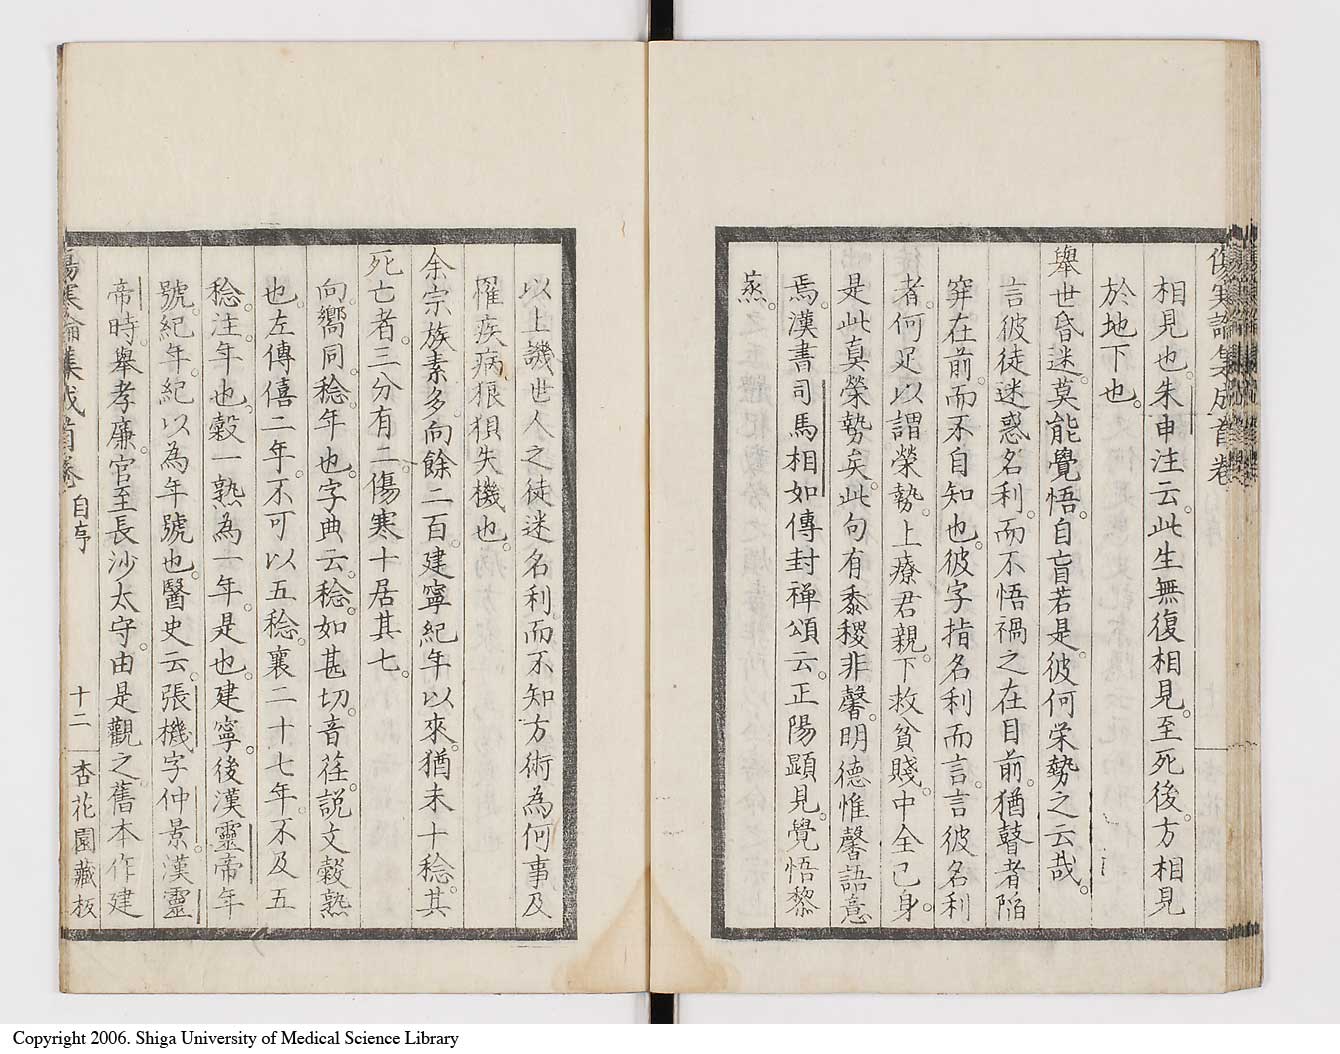 傷寒論集成首卷
相見也。朱申注云。此生無復相見。至死後。方相見
於地下也。
舉世昏迷。莫能覺悟。自盲若是。彼何栄勢之云哉。
言彼徒迷惑名利。而不悟禍之在目前。猶瞽者陷
穽在前。而不自知也。彼字指名利而言。言彼名利
者。何足以謂榮勢。上療君親。下救貧賤。中全己身。
是此真榮勢矣。此句有黍稷非馨。明德惟馨語意
焉。漢書司馬相如傳封禅頌云。正陽顕見。覺悟黎
烝。
以上譏世人之徒迷名利而不知方術為何事及
罹疾病狼狽失機也。
余宗族素多。向餘二百。建寧紀年以來。猶未十稔。其
死亡者。三分有二。傷寒十居其七。
向嚮同。稔。年也。字典云。稔。如甚切。音荏。説文。穀熟
也。左傳僖二年。不可以五稔。襄二十七年。不及五
稔。注。年也。穀一熟為一年。是也。建寧。後漢靈帝年
號。紀年。紀以為年號也。醫史云。張機字仲景。漢靈
帝時。舉孝廉。官至長沙太守。由是觀之。舊本作建
傷寒論集成首卷 自序 十二 杏花園藏板
Copyright 2006. Shiga University of Medical Science Library